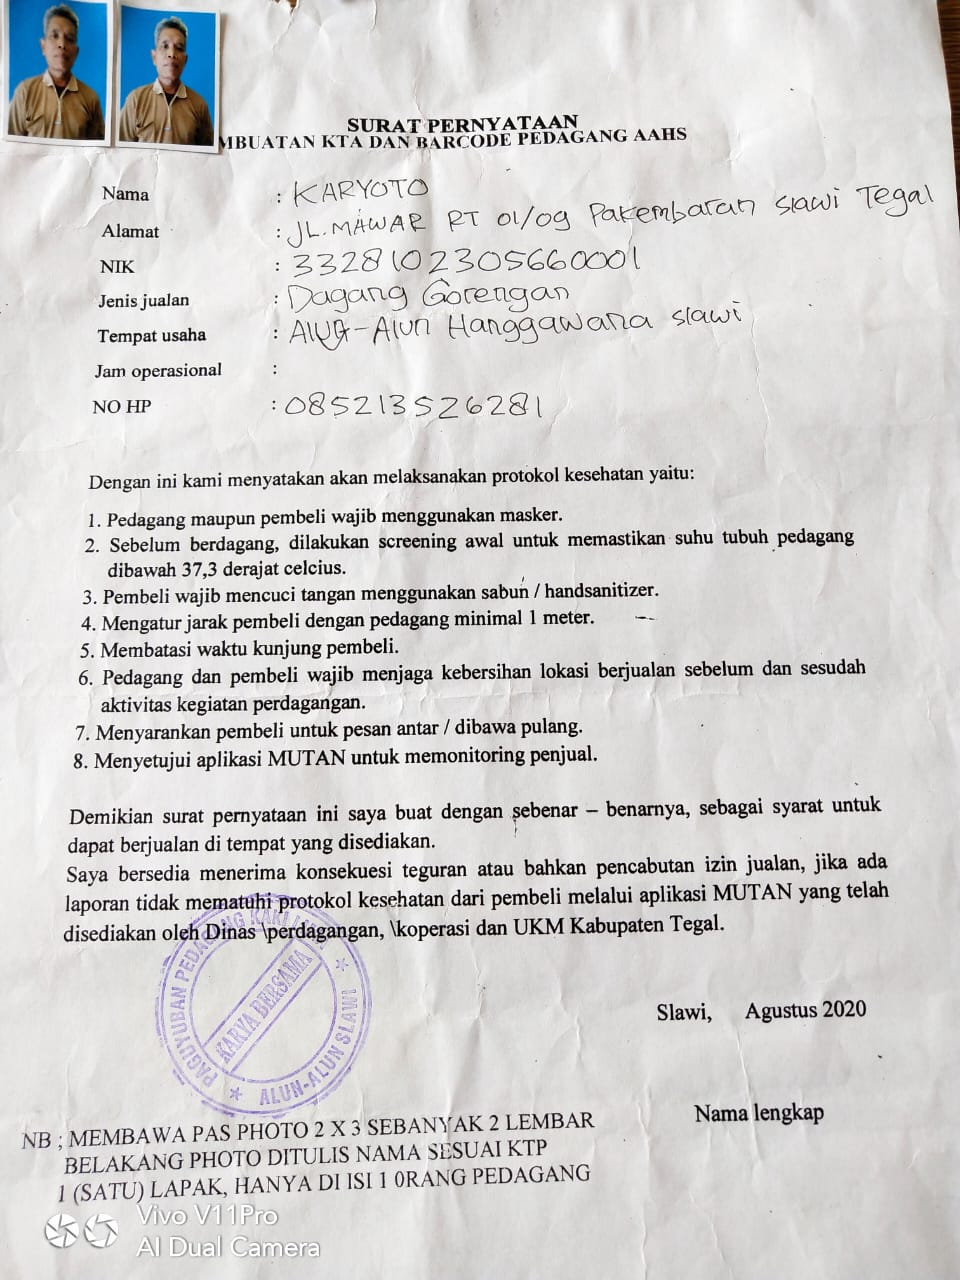 SURAT PERNYATAAN
MBUATAN KTA DAN BARCODE PEDAGANG AAHS
Nama : KARYOTO
Alamat : JL.MAWAR RT 01/09 Pakembaran Slawi Tegal
NIK : 3328102305660001
Jenis jualan : Dagang Gorengan
Tempat usaha : Alun-Alun Hanggawana Slawi
Jam operasional :
NO HP : 085213526281
Dengan ini kami menyatakan akan melaksanakan protokol kesehatan yaitu:
1. Pedagang maupun pembeli wajib menggunakan masker.
2. Sebelum berdagang, dilakukan screening awal untuk memastikan suhu tubuh pedagang
dibawah 37,3 derajat celcius.
3. Pembeli wajib mencuci tangan menggunakan sabun / handsanitizer.
4. Mengatur jarak pembeli dengan pedagang minimal 1 meter.
5. Membatasi waktu kunjung pembeli.
6. Pedagang dan pembeli wajib menjaga kebersihan lokasi berjualan sebelum dan sesudah
aktivitas kegiatan perdagangan.
7. Menyarankan pembeli untuk pesan antar / dibawa pulang.
8. Menyetujui aplikasi MUTAN untuk memonitoring penjual.
Demikian surat pernyataan ini saya buat dengan sebenar – benarnya, sebagai syarat untuk
dapat berjualan di tempat yang disediakan.
Saya bersedia menerima konsekuesi teguran atau bahkan pencabutan izin jualan, jika ada
laporan tidak mematuhi protokol kesehatan dari pembeli melalui aplikasi MUTAN yang telah
disediakan oleh Dinas \perdagangan, \koperasi dan UKM Kabupaten Tegal.
PAGUYUBAN PEDAGANG KAKI
KARYA BERSAMA
ALUN-ALUN SLAWI
Slawi, Agustus 2020
Nama lengkap
NB ; MEMBAWA PAS PHOTO 2 X 3 SEBANYAK 2 LEMBAR
BELAKANG PHOTO DITULIS NAMA SESUAI KTP
1 (SATU) LAPAK, HANYA DI ISI 1 0RANG PEDAGANG
Vivo V11Pro
AI Dual Camera